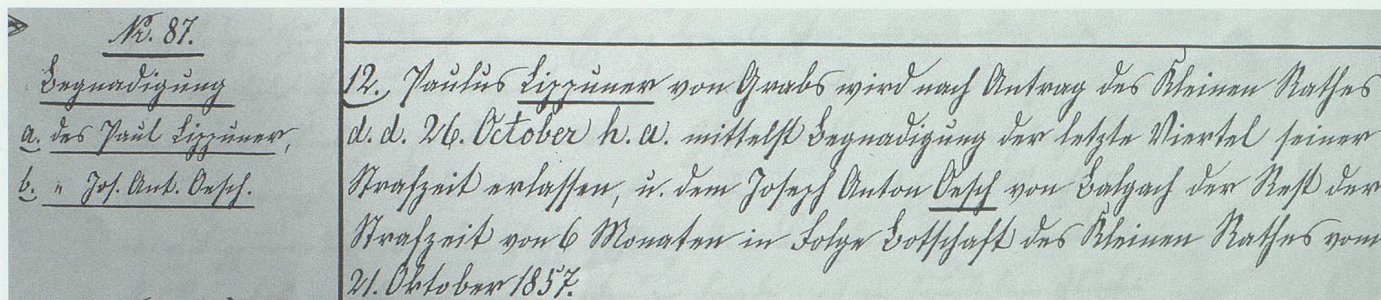 Nr. 87.
Begnadigung
a. des Paul Lippuner,
b. " Jos. Ant. Oesch.
12. Paulus Lippuner von Grabs wird nach Antrag des Kleinen Rathes
d. d. 26. October h. a. mittelst Begnadigung der letzte Viertel seiner
Strafzeit erlassen, u. dem Joseph Anton Oesch von Balgach der Rest der
Strafzeit von 6 Monaten in Folge Botschaft des Kleinen Rathes vom
21. Oktober 1857.